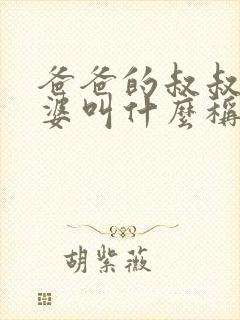 爸爸的叔叔
婆叫什麼稱
胡紫薇